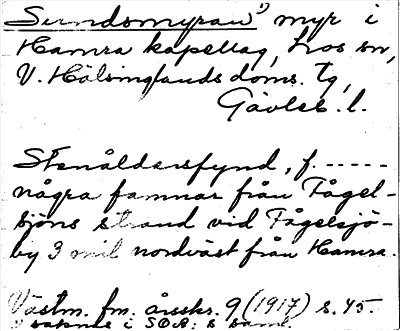 Sundsmyran¹⁾ myr i
Hamra kapellag, Los sn,
V. Hälsinglands doms. tg,
Gävleb. l.
Stenåldersfynd, f. -----
några famnar från Fågel-
sjöns strand vid Fågelsjö-
by 3 mil nordväst från Hamra.
Västm. fm. årsskr. 9 (1917) s. 45.
saknas i SOA: s saml